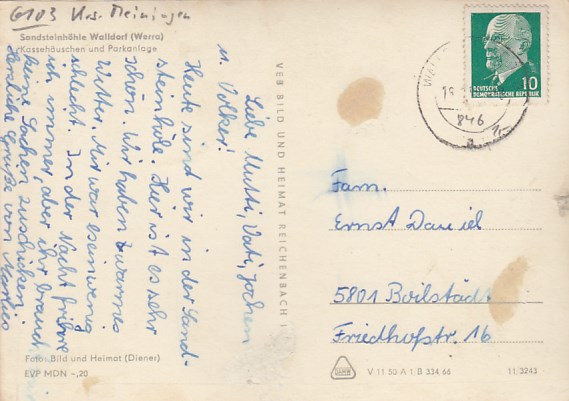 6103 Krs. Meiningen
Sandsteinhöhle Walldorf (Werra)
Kassehäuschen und Parkanlage
Liebe Mutti, Vati, Jochen
u. Volker!
Heute sind wir in der Sand-
steinhöle. Hier ist es sehr
schön. Wir haben warmes
Wetter. Mir war es ein wenig
schlecht. In der Nacht friere
ich immer, aber ihr braucht
keine Sachen zuschicken.
Herzliche Grüße von
Foto: Bild und Heimat (Diener)
EVP MDN –,20
VEB BILD UND HEIMAT REICHENBACH I
10
DEUTSCHE
DEMOKRATISCHE REPUBLIK
846
a
Fam.
Ernst Daniel
5801 Boilstädt
Friedhofstr. 16
V 11 50 A 1.B 334/66
11/3243